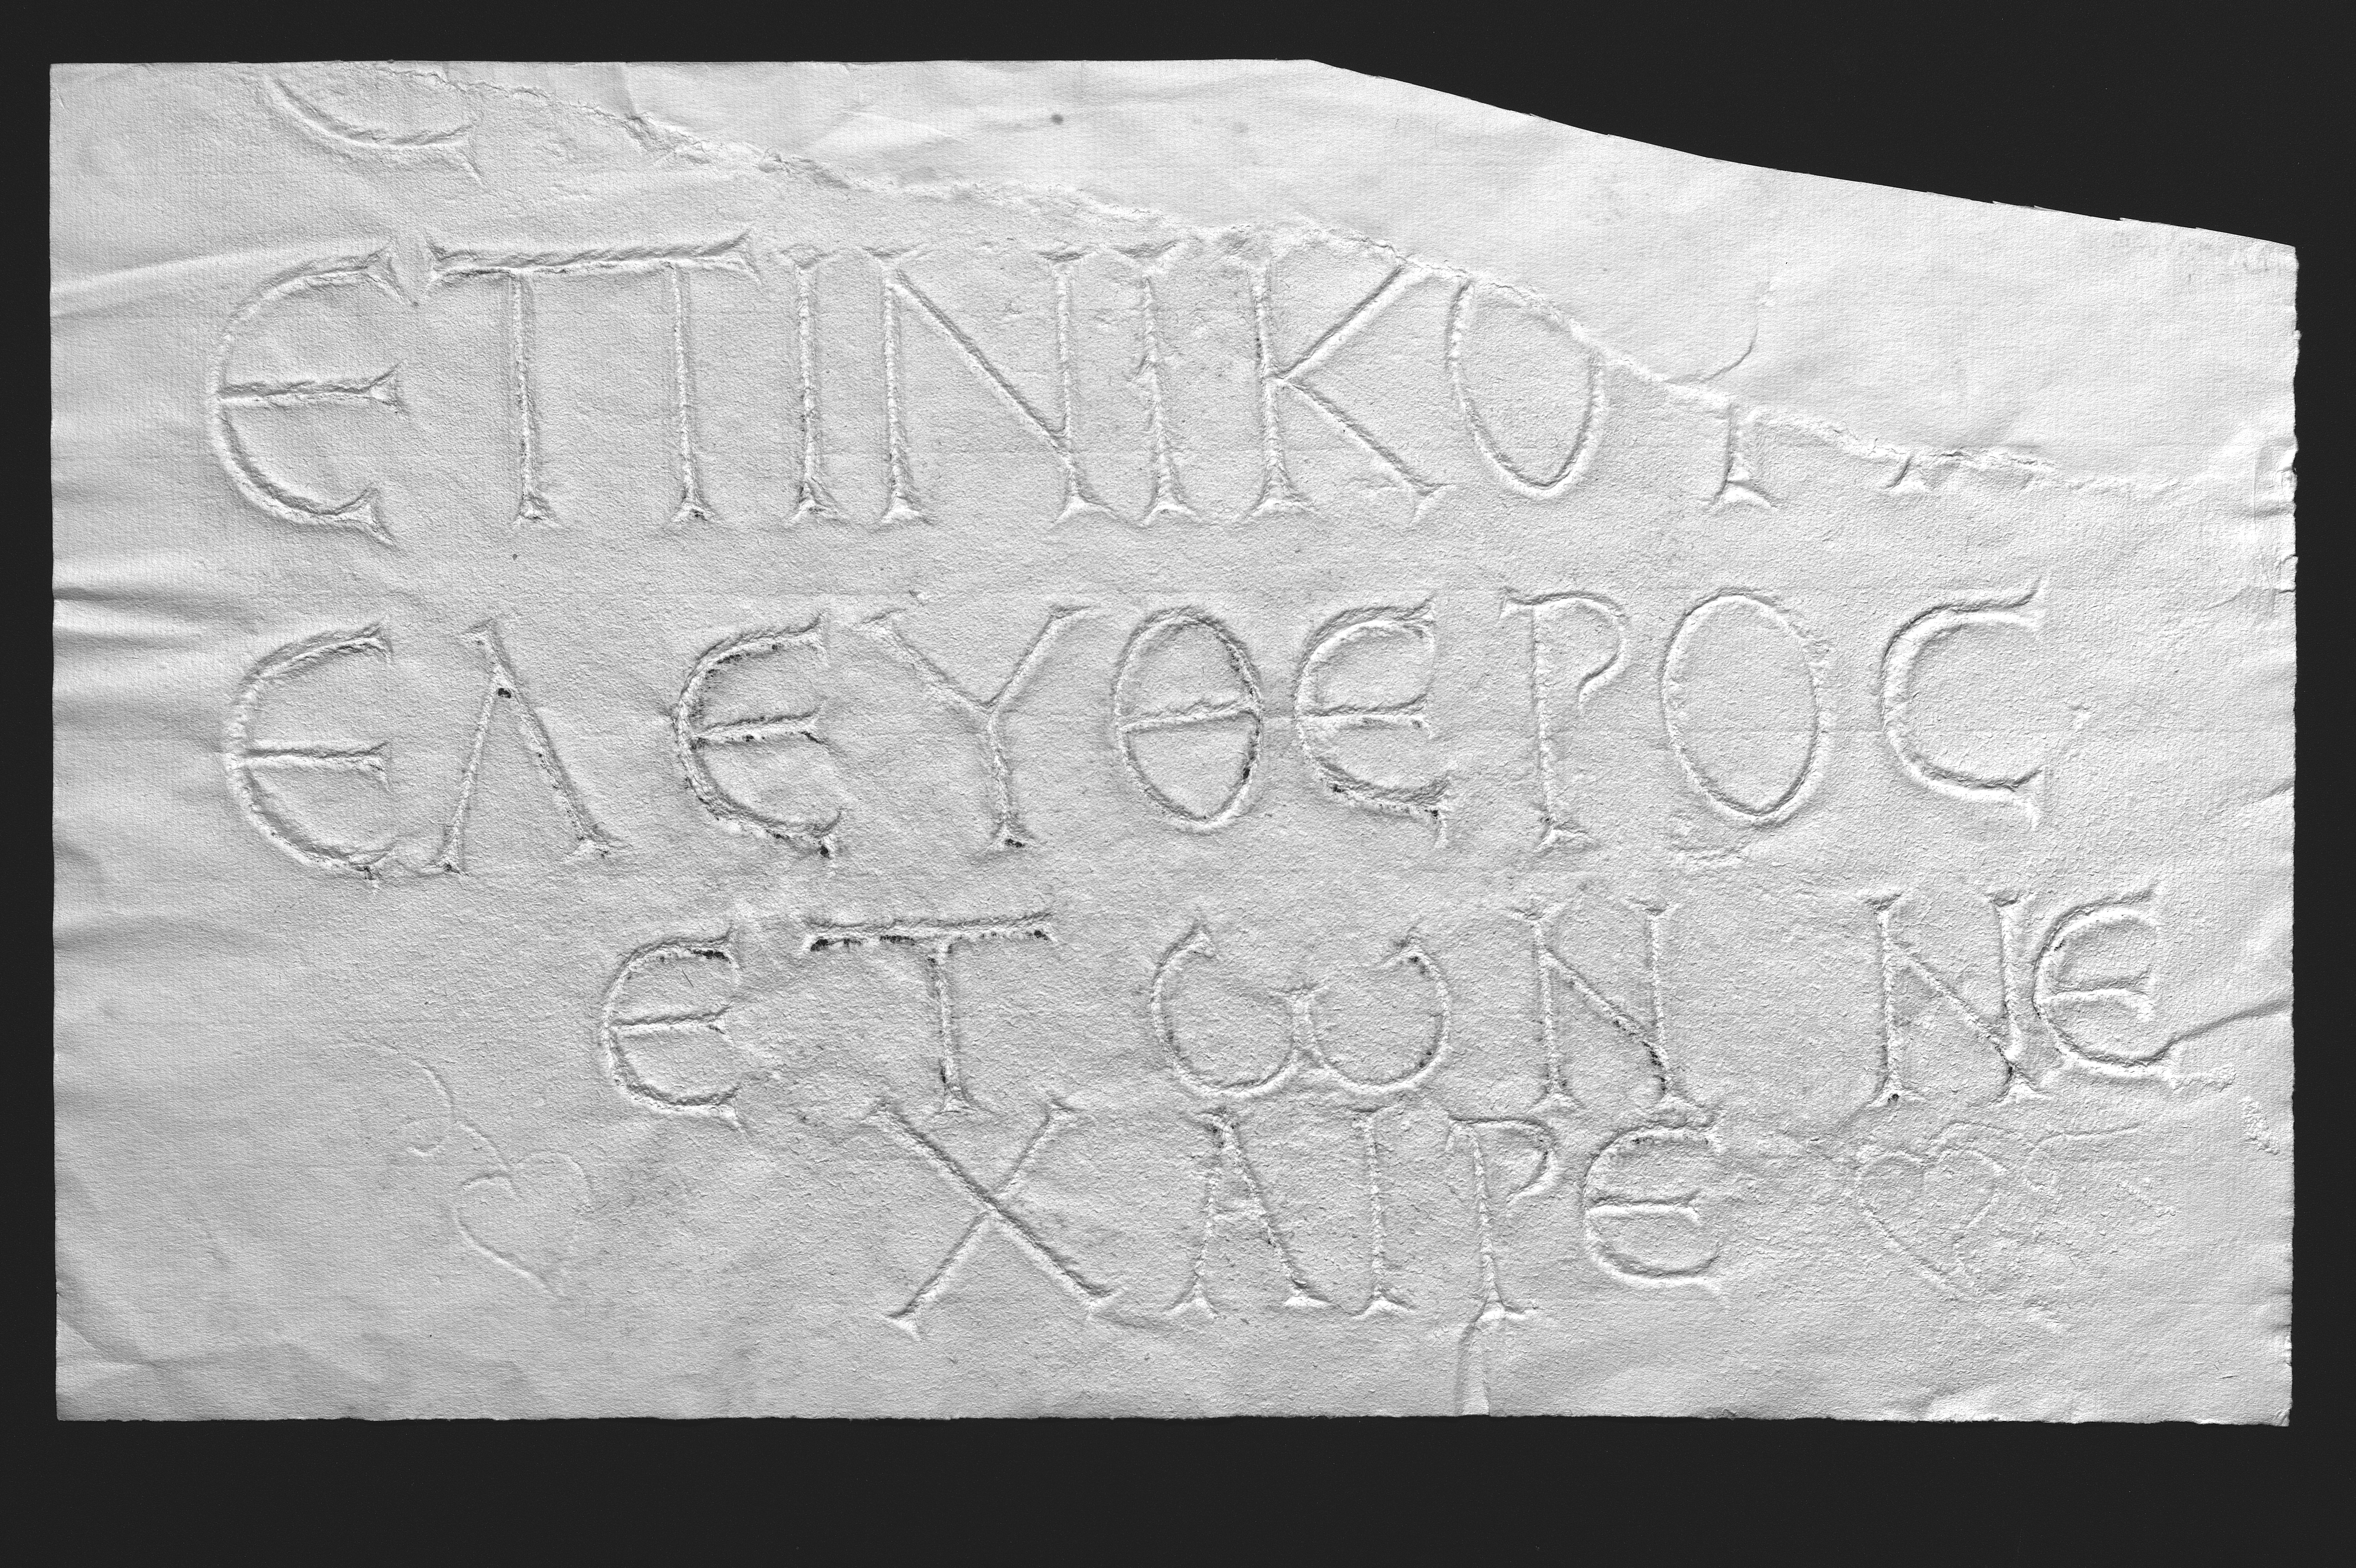 ΕΠΙΝΙΚΟ
ΕΛΕΥΘΕΡΟϹ
ΕΤΩΝ ΝΕ
ΧΑΙΡΕ